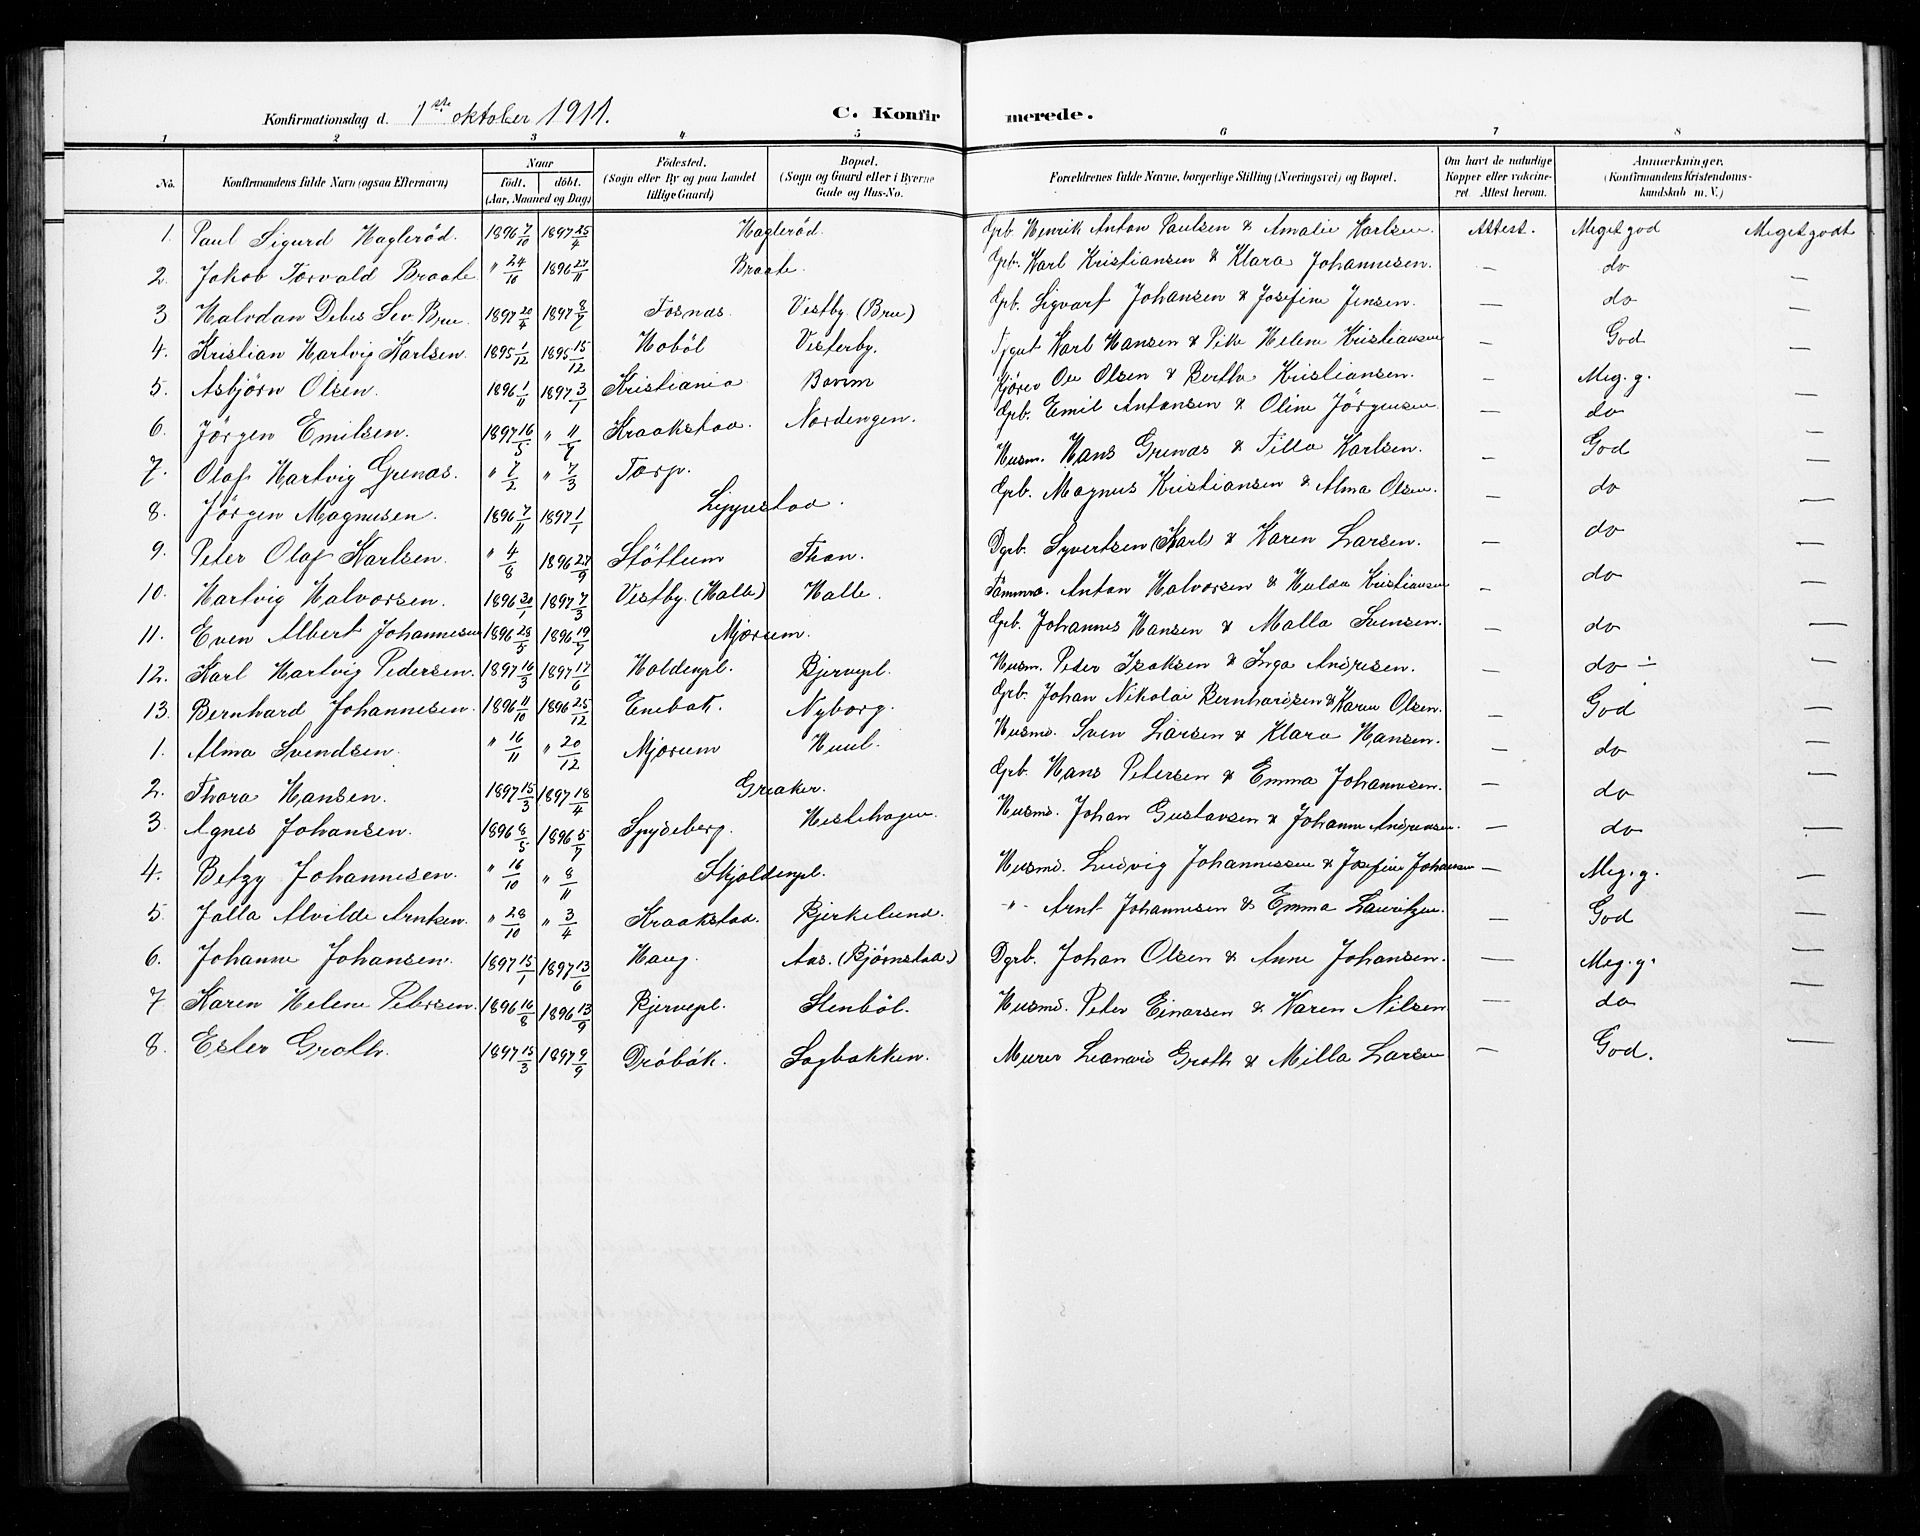 Konfirmationsdag d. 1ste oktober 1911. C. Konfir merede.
1 2 3 4 5 6 7 8
No. Konfirmandens fulde Navn (ogsaa Efternavn) Naar födt. döbt. (Aar, Maaned og Dag) Födested. (Sogn eller By og paa Landet tillige Gaard) Bopæl. (Sogn og Gaard eller i Byerne Gade og Hus-No. Forældrenes fulde Navne, borgerlige Stilling (Næringsvei) og Bopæl. Om havt de naturlige Kopper eller vakcineret Attest herom. Anmærkninger. (Konfirmandens Kristendomskundskab m. V.)
1. Paul Sigurd Haglerød. 1896 7/10 1897 25/4 Haglerød. Gpb. Henrik Anton Paulsen & Amalie Karlsen Attest. Meget god Meget godt
2. Jakob Torvald Braate " 24/10 1896 27/11 Braate. Gpb. Karl Kristiansen & Klara Johannesen. — do —
3. Halvdan Debes Sev Bru 1897 20/4 1897 8/7 Fosnas. Vestby (Bru) Gpb. Sigvart Johansen & Josefine Jensen. — do —
4. Kristian Hartvig Karlsen. 1895 1/12 1895 15/12 Hobøl Vesterby. Karl Hansen & Helene Kristiansen — God —
5. Asbjörn Olsen. 1896 1/11 1897 3/1 Kristiania Olsen & Bertha Kristiansen. — Meg. g. —
6. Jörgen Emilsen. 1897 16/5 " 11/7 Kraakstad. Nordengen. Gpb. Emil Antonsen & Oline Jörgensen — do —
7. Olaf Hartvig Grenas. " 7/2 " 7/3 Torp. Husm. Hans Grenas & Tilla Karlsen. — God —
8. Jörgen Magnusen. 1896 7/11 1897 1/1 Lippestad. Gpb. Magnus Kristiansen & Alma Olsen. — do —
9. Peter Olaf Karlsen. " 4/8 1896 27/9 Støttum Thon. Dgrb. Syvertsen (Karl) & Karen Larsen. — do —
10. Hartvig Halvorsen. 1896 30/1 1897 7/3 Vestby. (Halle) Halle. Tömmrm. Anton Halvorsen & Hulda Kristiansen — do —
11. Even Albert Johannesen 1896 28/5 1896 19/7 Mjørum. Gpb. Johannes Hansen & Malla Svensen. — do —
12. Karl Hartvig Pedersen. 1897 16/3 1897 17/6 Holdenpl. Bjervepl. Husm. Peder Isaksen & Inga Andresen. — do —
13. Bernhard Johannesen. 1896 11/10 1896 25/12 Enebak. Nyborg. Gpb. Johan Nikolai Bernhardsen & Karen Olsen. — God —
1. Alma Svendsen. " 16/11 " 20/12 Mjørum Huul. Husmd. Sven Larsen & Klara Hansen. — do —
2. Thora Hansen. 1897 15/3 1897 18/4 Greaker. Gpb. Hans Petersen & Emma Johannesen. — do —
3. Agnes Johansen. 1896 8/5 1896 5/7 Spydeberg. Hestehagen. Husmd. Johan Gustavsen & Johanne Andreasen. — do —
4. Betzy Johannesen. " 16/10 " 8/11 Skjoldenpl. Husmd. Ludvig Johannessen & Josefine Johansen — Meg. g. —
5. Jalla Alvilde Arntsen. " 28/10 " 3/4 Kraakstad. Bjerkelund. " Arnt Johannesen & Emma Lauritzen. — God —
6. Johanne Johansen. 1897 15/1 1897 13/6 Haug. Aas. (Bjørnstad.) Dgrb. Johan Olsen & Anne Johansen. — Meg. g. —
7 Karen Helene Petersen. 1896 16/8 1896 13/9 Bjervepl. Stenböl. Husmd. Peter Einarsen & Karen Nilsen — do —
8. Ester Groth. 1897 15/3 1897 9/9 Dröbak. Sagbakken. Murer Leonard Groth & Milla Larsen — God. —